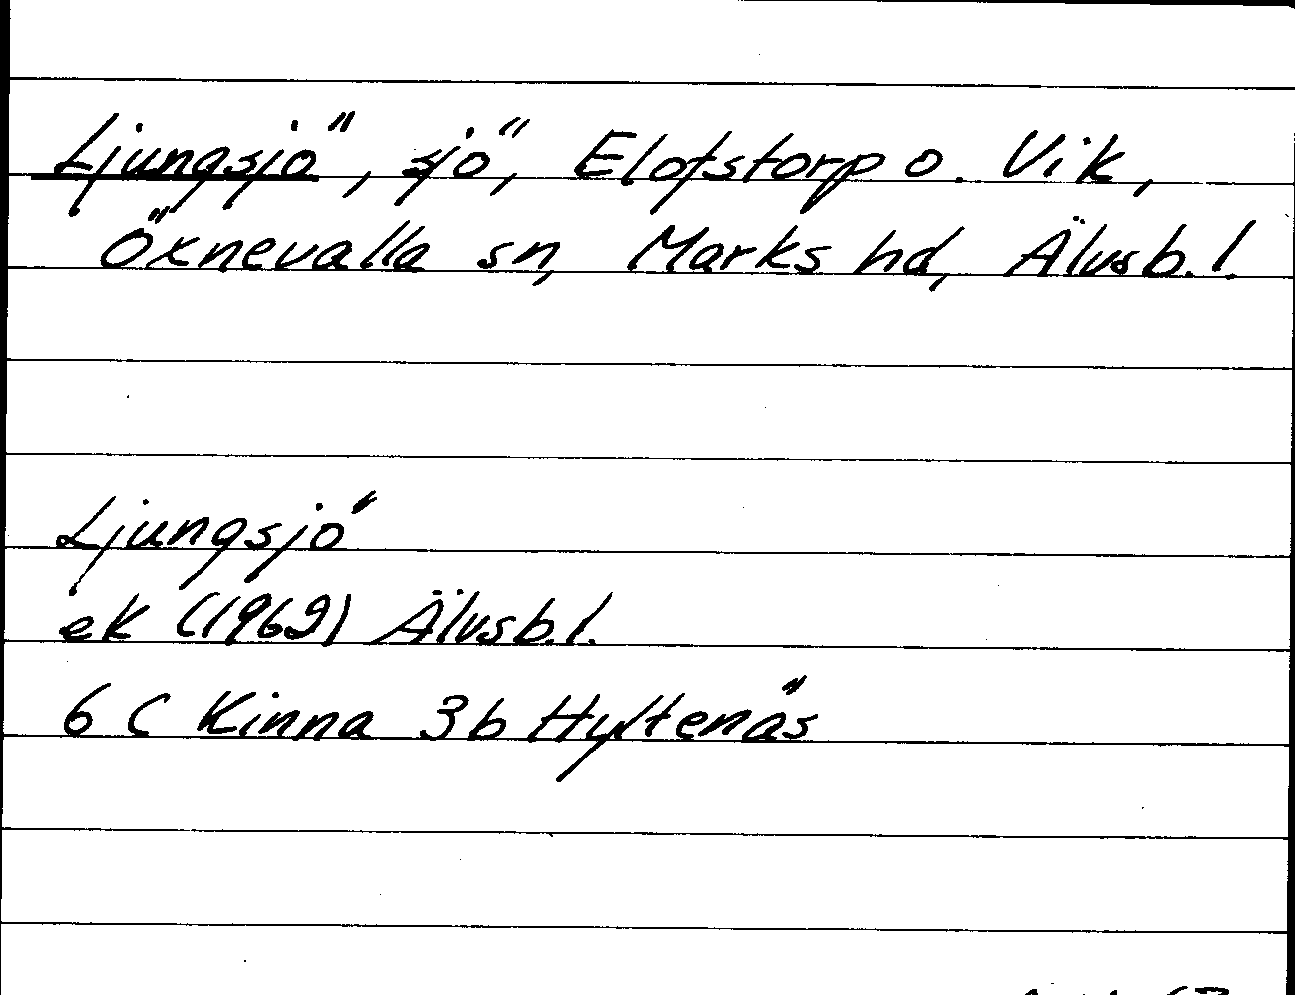 Ljungsjö, sjö, Elofstorp o. Vik,
Öxnevalla sn, Marks hd, Älvsb. l.
Ljungsjö
ek (1969) Älvsb. l.
6 C Kinna 3b Hyltenäs